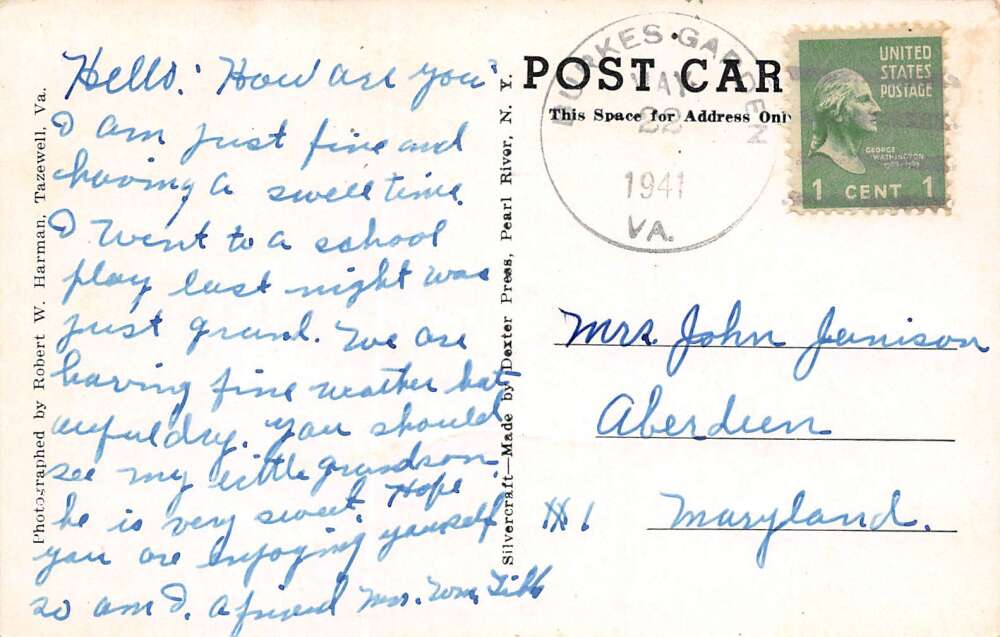 Photographed by Robert W. Harman, Tazewell, Va.
Hello. How are you
I am just fine and
having a swell time.
I went to a school
play last night was
just grand. We are
having fine weather but
awful dry. You should
see my little grandson
he is very sweet. Hope
you are enjoying yourself
so am I. A friend Mrs. Wm.
Silvercraft—Made by Dexter Press, Pearl River, N. Y.
POST CAR
This Space for Address Only
BURKES GARDEN
MAY
22
1941
VA.
UNITED
STATES
POSTAGE
GEORGE
WASHINGTON
1 CENT 1
Mrs. John Jenison
Aberdeen
#1 Maryland.